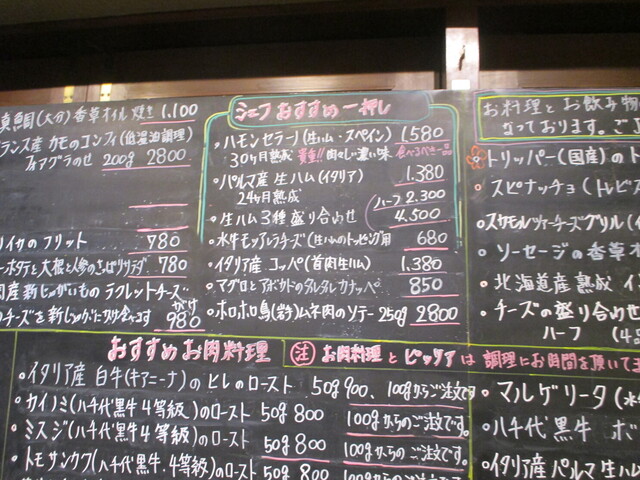 真鯛(大分)香草オイル焼き 1.100
ランス産 カモのコンフィ(低温油調理)
フォアグラのせ 200g 2800
イカのフリット 780
ホタテと大根と人参のさっぱりサラダ 780
産新じゃがいものラクレットチーズがけ
のチーズを新じゃがにかけます 980
シェフおすすめ一押し
・ハモンセラーノ(生ハム・スペイン) 1580
30ヶ月熟成 貴重!! 肉々しい濃い味 食べるべき一品
・パルマ産生ハム(イタリア) 1.380
24ヶ月熟成
・生ハム3種盛り合わせ (ハーフ 2.300
4.500
・水牛モッツァレラチーズ(生ハムのトッピング用 680
・イタリア産 コッパ(首肉生ハム) 1.380
・マグロとアボカドのタルタルカナッペ 850
・ホロホロ鳥(岩手)ムネ肉のソテー 250g 2800
お料理とお飲み物
なっております。ご
トリッパー(国産)のト
・スピナッチョ(トレビス
・スカモルツァーチーズグリル(イ
・ソーセージの香草オ
・北海道産熟成 イ
・チーズの盛り合わせ
ハーフ (4
おすすめお肉料理
注 お肉料理とピッツァは調理にお時間を頂いて
・イタリア産 白牛(キアニーナ)のヒレのロースト 50g 900、100gからご注文です
・カイノミ(八千代黒牛4等級)のロースト 50g 800 100gからのご注文です。
・ミスジ(八千代黒牛4等級)のロースト 50g 800 100gからのご注文です。
・トモサンカク(八千代黒牛.4等級)のロースト 50g 800 100gからのご注文です
・マルゲリータ(水
・八千代黒牛 ボ
・イタリア産パルマ生ハム